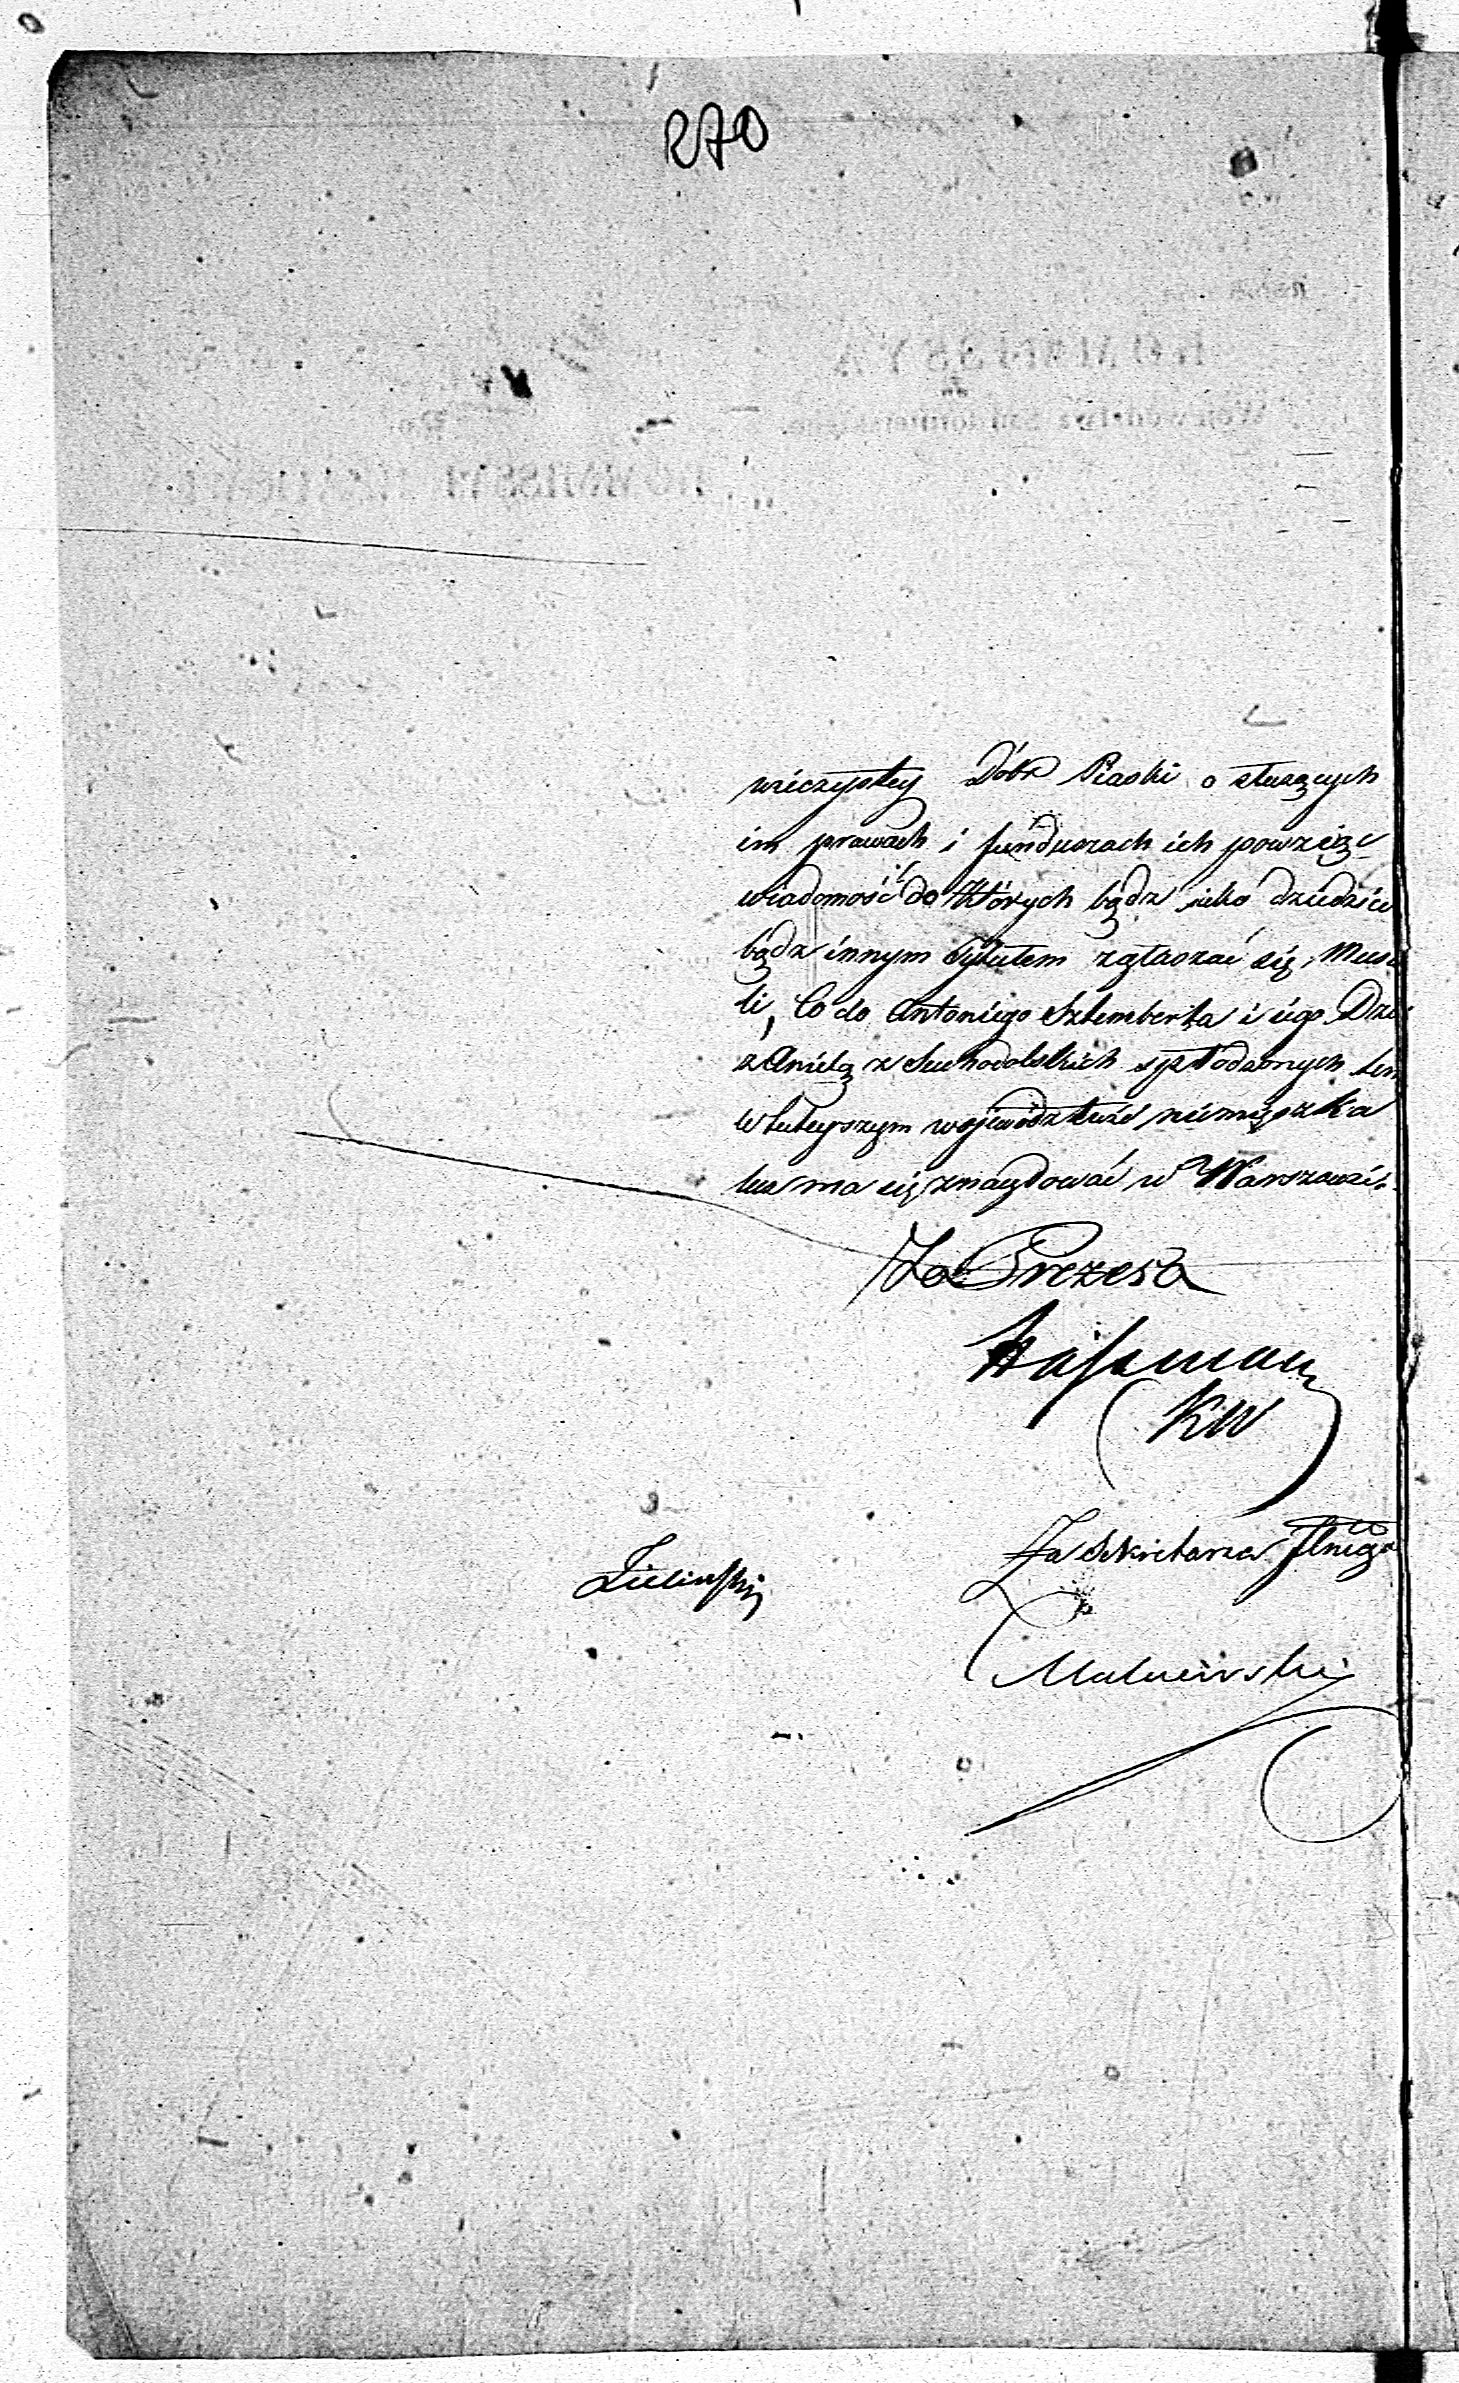 270
wieczystey Dóbr Piaski o służących
im prawach i funduszach ich powziąć
wiadomość do których bądz jako dziedzice
bądz innym tytułem zgłaszać się Musie
li, Co do Antoniego Szlemberka i iego Dzie
z Anielą z Suchodolskich spłodzonych ten
w tuteyszym województwie niemięszka
lecz ma się znaydować w Warszawie.
Za Prezesa
KW
Zieliński
Za Sekretarza Jlnego